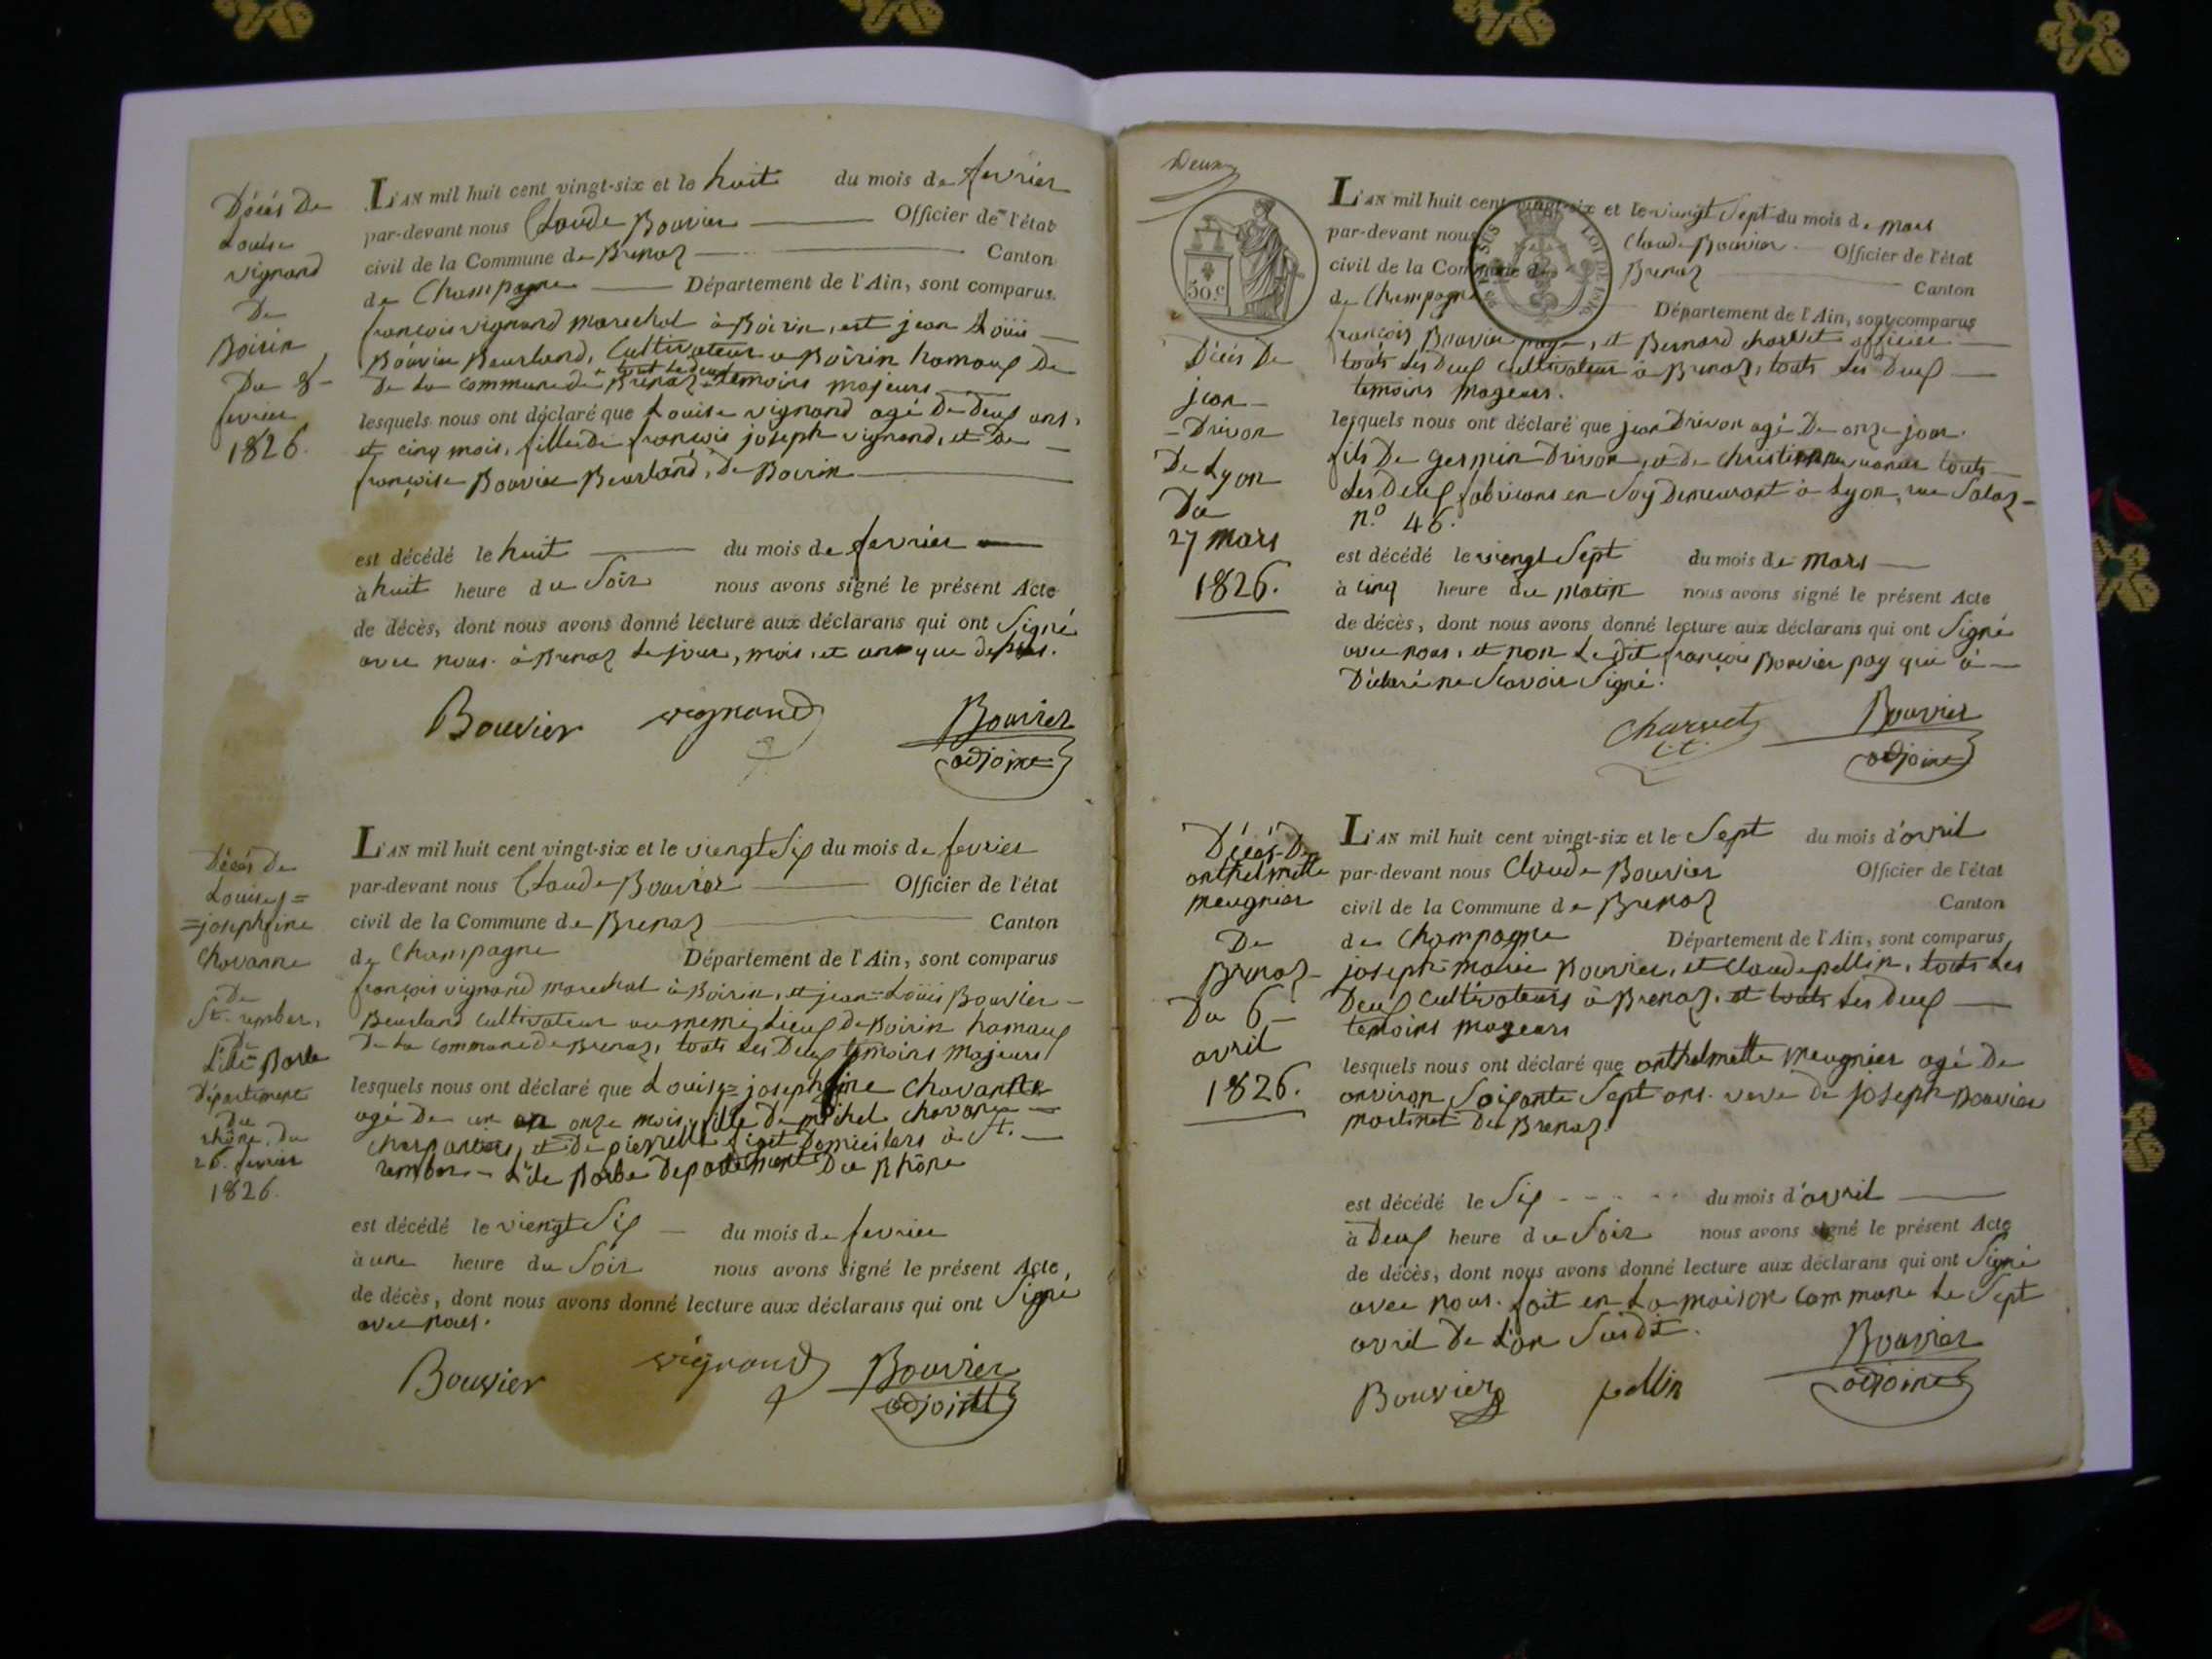 Décés De
Louise
vignand
De
Boirin
Du 8
fevrier
1826.
L'AN mil huit cent vingt-six et le huit du mois de fevrier
par-devant nous Claude Bouvier Officier de l'état
civil de la Commune de Brenaz Canton
de Champagne Département de l'Ain, sont comparus
françois vignand marechal à Boirin, est jean Loüis
Bouvier Beurland, Cultivateur a Boirin hamauf De
De La commune de Brenaz tout Le deuf temoins majeurs
lesquels nous ont déclaré que Louise vignand agé De deuf ans,
et cinq mois, fille de françois joseph vignand, et De
françoise Bouvier Beurland, De Boirin
est décédé le huit du mois de fevrier
à huit heure du Soir nous avons signé le présent Acte
de décès, dont nous avons donné lecture aux déclarans qui ont Signé
avec nous. à Brenaz Le jour, mois, et an que dessus.
Bouvier vignand Bouvier
adjoint
Décés De
Louise =
= josephine
Chavanne
De
St. rember,
De
L'ile Barbe
Département
Du
rhône, du
26 fevrier
1826.
L'AN mil huit cent vingt-six et le viengt Sif du mois de fevrier
par-devant nous Claude Bouvier Officier de l'état
civil de la Commune de Brenaz Canton
de Champagne Département de l'Ain, sont comparus
françois vignand marechal à Boirin, et jean = Loüis Bouvier
Beurland Cultivateur au meme Lieuf De Boirin hamauf
De La Commune de Brenaz, touts Les Deuf temoins majeurs
lesquels nous ont déclaré que Louise = josephine Chavanne
agé De un an onze mois, fille De michel Chavane
Charpantier, et De pierrette Domiciliers à St.
rember L'ile Barbe Departement Du Rhône
est décédé le viengt Sif du mois de fevrier
à une heure du Soir nous avons signé le présent Acte,
de décès, dont nous avons donné lecture aux déclarans qui ont Signé
avec nous.
Bouvier vignand Bouvier
adjoint
Deux
50 C
LOI DE 1816
Décés De
jean
Drivon
De Lyon
Du
27 mars
1826.
L'AN mil huit cent vingt-six et le viengt Sept du mois de mars
par-devant nous Claude Bouvier Officier de l'état
civil de la Commune de Brenaz Canton
de Champagne Département de l'Ain, sont comparus
françois Bouvier page, et Bernard charvet officier
touts Les Deuf Cultivateur à Brenaz, touts Les Deuf
temoins mageurs.
lesquels nous ont déclaré que jean Drivon agé De onze jour.
fils De germin Drivon, et de Christienne touts
Les Deuf fabricans en Soy Demeurant à Lyon, rue
n.º 46.
est décédé le viengt Sept du mois de mars
à cinq heure du matin nous avons signé le présent Acte
de décès, dont nous avons donné lecture aux déclarans qui ont Signé
avec nous, et non Le Dit françois Bouvier pag qui à
Déclaré ne Scavoir Signé.
Charvet Bouvier
adjoint
Décés De
anthelmette
meugnier
De
Brenaz
Du 6
avril
1826.
L'AN mil huit cent vingt-six et le Sept du mois d'avril
par-devant nous Claude Bouvier Officier de l'état
civil de la Commune de Brenaz Canton
de Champagne Département de l'Ain, sont comparus
joseph-marie Bouvier, et Claude pellin, touts Les
Deuf Cultivateurs à Brenaz, et touts Les Deuf
temoins mageurs
lesquels nous ont déclaré que anthelmette meugnier agé De
anviron Soifante Sept ans. veve de joseph Bouvier
martinet De Brenaz
est décédé le Sif du mois d'avril
à Deuf heure du Soir nous avons signé le présent Acte
de décès, dont nous avons donné lecture aux déclarans qui ont Signé
avec nous. fait en La maison Commune Le Sept
avril De L'an Susdit.
Bouvier pellin Bouvier
adjoint